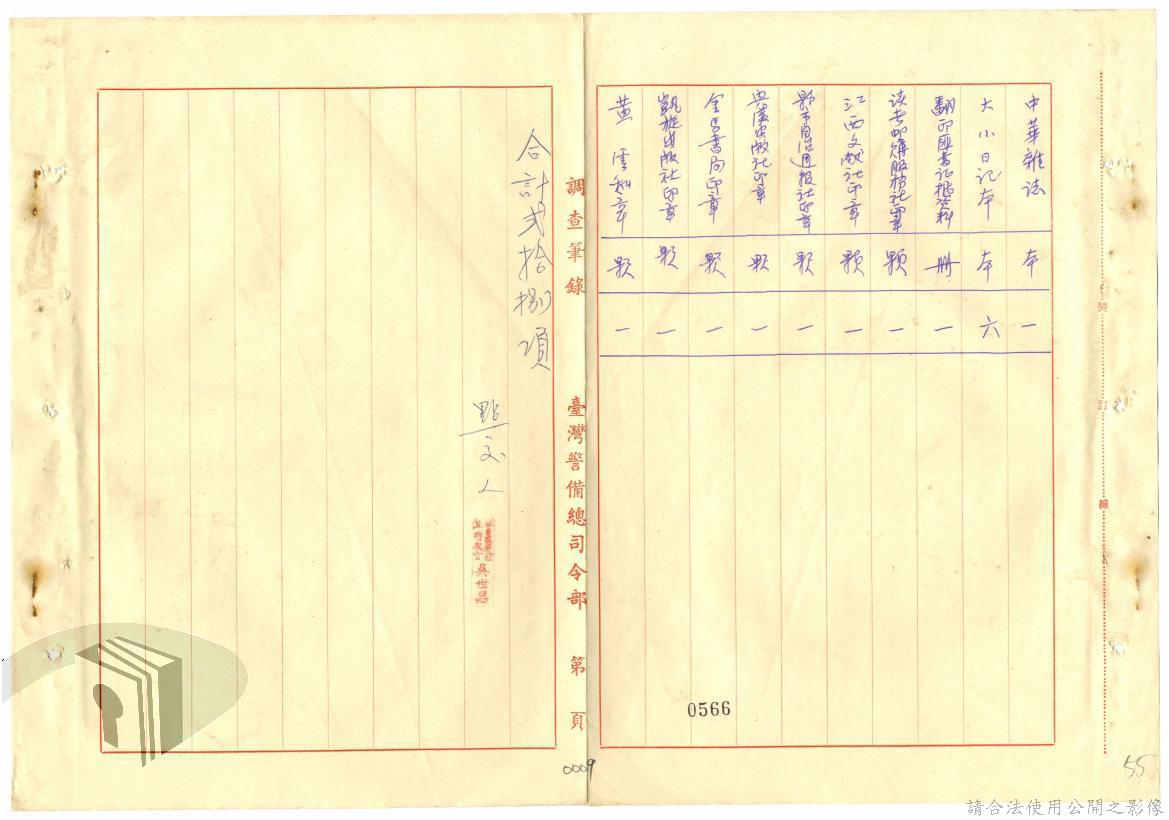 中華雜誌 本 一
大小日記本 本 六
翻印匪書証据資料 冊 一
讀者郵購服務社印章 顆 一
江西文献社印章 顆 一
縣市自治週报社印章 顆 一
出版社印章 顆 一
金馬書局印章 顆 一
凱旋出版社印章 顆 一
黃 章 顆 一
調查筆錄 臺灣警備總司令部 第 頁
合計弍拾捌項
點交人
吳世昌
裝 訂 線
0566
0009
55
請合法使用公開之影像